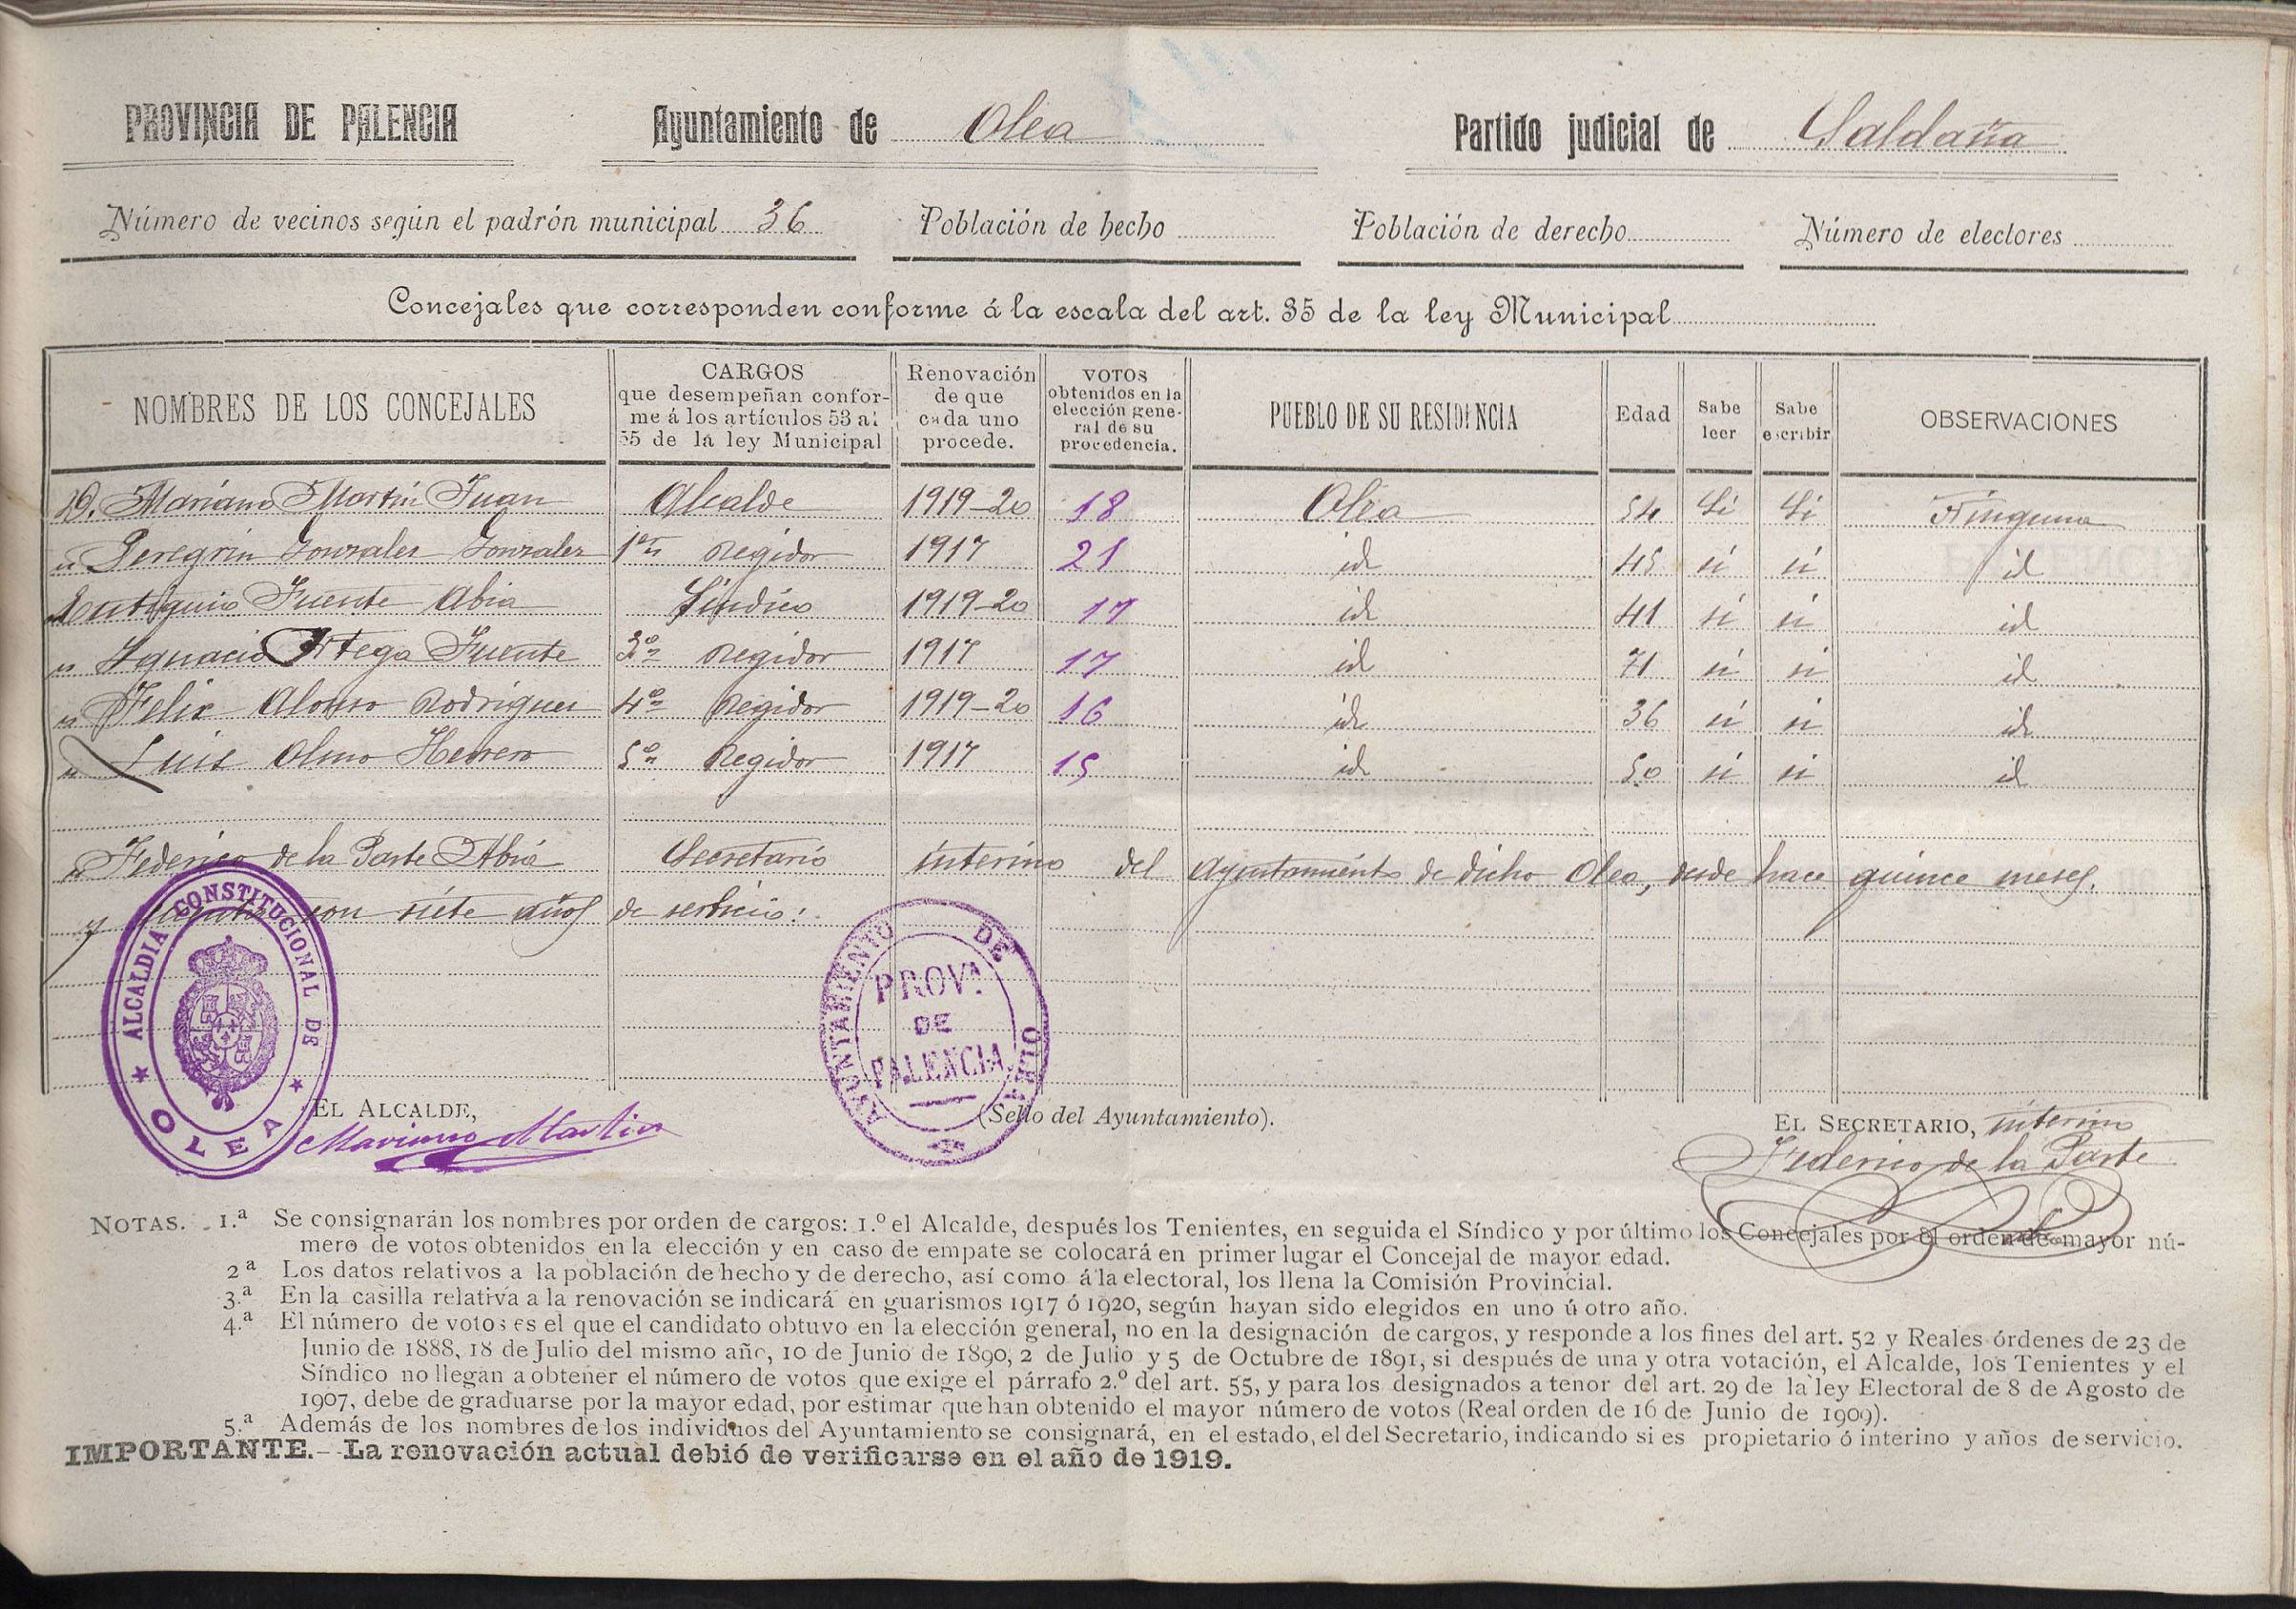 PROVINCIA DE PALENCIA Ayuntamiento de Olea Partido judicial de Saldaña
Número de vecinos según el padrón municipal 36 Población de hecho Población de derecho Número de electores
Concejales que corresponden conforme á la escala del art. 35 de la ley Municipal
NOMBRES DE LOS CONCEJALES CARGOS que desempeñan confor-me á los artículos 53 al 55 de la ley Municipal Renovación de que cada uno procede. VOTOS obtenidos en la elección gene-ral de su procedencia. PUEBLO DE SU RESIDENCIA Edad Sabe leer Sabe escribir OBSERVACIONES
D. Mariano Martín Juan Alcalde 1919-20 18 Olea 54 Si Si Ninguna
" Peregrin Gonzalez Gonzalez 1er Regidor 1917 21 id 45 si si id
" Eutiquio Fuente Abia Síndico 1919-20 17 id 41 si si id
" Ygnacio Ortega Fuente 3º Regidor 1917 17 id 71 si si id
" Felix Alonso Rodriguez 4º Regidor 1919-20 16 id 36 si si id
" Luis Olmo Herrero 5º Regidor 1917 15 id 50 si si id
" Federico de la Parte Abia Secretario interino del Ayuntamiento de dicho Olea, desde hace quince meses.
y con siete años de servicio.
ALCALDIA CONSTITUCIONAL DE OLEA
AYUNTAMIENTO DE OLEA
PROVª
DE
PALENCIA
EL ALCALDE,
Mariano Martin
(Sello del Ayuntamiento).
EL SECRETARIO, interino
Federico de la Parte
NOTAS. 1.ª Se consignarán los nombres por orden de cargos: 1.º el Alcalde, después los Tenientes, en seguida el Síndico y por último los Concejales por el orden de mayor nú-
mero de votos obtenidos en la elección y en caso de empate se colocará en primer lugar el Concejal de mayor edad.
2ª Los datos relativos a la población de hecho y de derecho, así como á la electoral, los llena la Comisión Provincial.
3.ª En la casilla relativa a la renovación se indicará en guarismos 1917 ó 1920, según hayan sido elegidos en uno ú otro año.
4.ª El número de votos es el que el candidato obtuvo en la elección general, no en la designación de cargos, y responde a los fines del art. 52 y Reales órdenes de 23 de
Junio de 1888, 18 de Julio del mismo año, 10 de Junio de 1890, 2 de Julio y 5 de Octubre de 1891, si después de una y otra votación, el Alcalde, los Tenientes y el
Síndico no llegan a obtener el número de votos que exige el párrafo 2.º del art. 55, y para los designados a tenor del art. 29 de la ley Electoral de 8 de Agosto de
1907, debe de graduarse por la mayor edad, por estimar que han obtenido el mayor número de votos (Real orden de 16 de Junio de 1909).
5.ª Además de los nombres de los individuos del Ayuntamiento se consignará, en el estado, el del Secretario, indicando si es propietario ó interino y años de servicio.
IMPORTANTE.--La renovación actual debió de verificarse en el año de 1919.